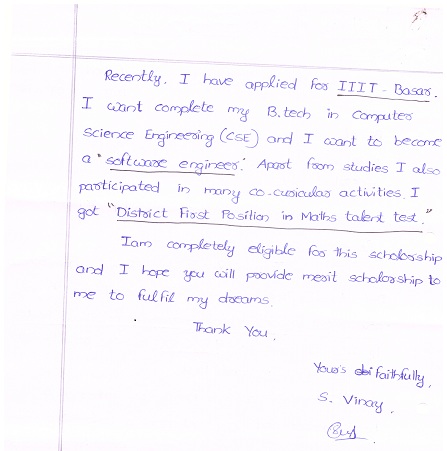 Recently, I have applied for IIIT - Basar.
I want complete my B.tech in Computer
Science Engineering (CSE) and I want to become
a "software engineer." Apart from studies I also
participated in many co-curicular activities. I
got "District First Position in Maths talent test."
Iam completely eligible for this scholorship
and I hope you will provide merit scholorship to
me to fulfil my dreams.
Thank You.
Your's faithfully,
S. Vinay.